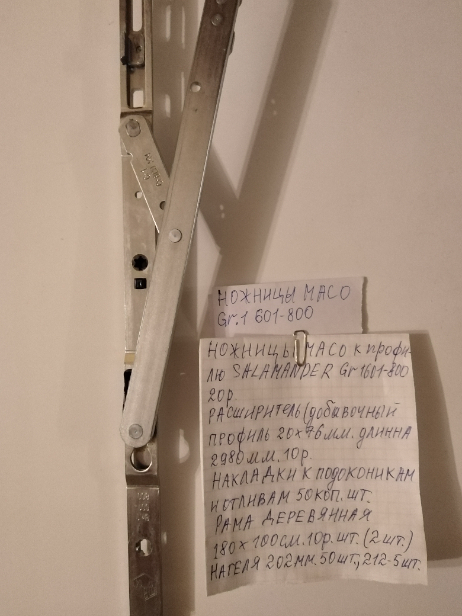 НОЖНИЦЫ МАСО
Gr.1 601-800
НОЖНИЦЫ МАСО к профи-
лю SALAMANDER Gr1601-800
20р.
РАСШИРИТЕЛЬ(добавочный
ПРОФИЛЬ 20×76мм. длинна
2980мм. 10р.
НАКЛАДКИ К ПОДОКОНИКАМ
И ОТЛИВАМ 50коп. шт.
РАМА ДЕРЕВЯННАЯ
180×100см. 10р. шт. (2 шт.)
НАГЕЛЯ 202мм. 50шт., 212-5шт.